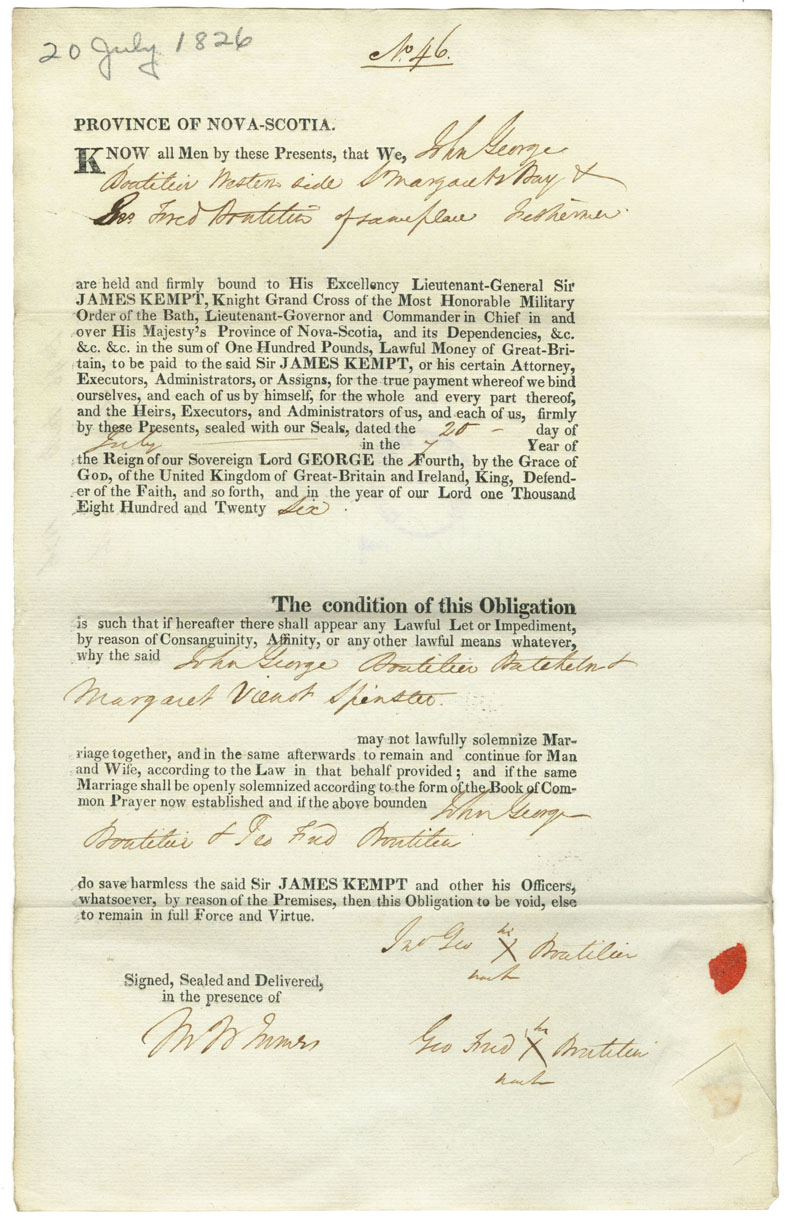 20 July 1826
No. 46.
PROVINCE OF NOVA-SCOTIA.
KNOW all Men by these Presents, that We, John George
Boutilier Western side St Margarets Bay &
Geo Fred Boutilier of same place Fishermen
are held and firmly bound to His Excellency Lieutenant-General Sir
JAMES KEMPT, Knight Grand Cross of the Most Honorable Military
Order of the Bath, Lieutenant-Governor and Commander in Chief in and
over His Majesty's Province of Nova-Scotia, and its Dependencies, &c.
&c. &c. in the sum of One Hundred Pounds, Lawful Money of Great-Bri-
tain, to be paid to the said Sir JAMES KEMPT, or his certain Attorney,
Executors, Administrators, or Assigns, for the true payment whereof we bind
ourselves, and each of us by himself, for the whole and every part thereof,
and the Heirs, Executors, and Administrators of us, and each of us, firmly
by these Presents, sealed with our Seals, dated the 20 - day of
July in the 7 Year of
the Reign of our Sovereign Lord GEORGE the Fourth, by the Grace of
GOD, of the United Kingdom of Great-Britain and Ireland, King, Defend-
er of the Faith, and so forth, and in the year of our Lord one Thousand
Eight Hundred and Twenty Six.
The condition of this Obligation
is such that if hereafter there shall appear any Lawful Let or Impediment,
by reason of Consanguinity, Affinity, or any other lawful means whatever,
why the said John George Boutilier Batchelor &
Margaret Vienot Spinster.
may not lawfully solemnize Mar-
riage together, and in the same afterwards to remain and continue for Man
and Wife, according to the Law in that behalf provided; and if the same
Marriage shall be openly solemnized according to the form of the Book of Com-
mon Prayer now established and if the above bounden John George
Boutilier & Geo Fred Boutilier
do save harmless the said Sir JAMES KEMPT and other his Officers,
whatsoever, by reason of the Premises, then this Obligation to be void, else
to remain in full Force and Virtue.
his
Jno Geo X Boutilier
mark
Signed, Sealed and Delivered,
in the presence of
his
Geo Fred X Boutilier
mark